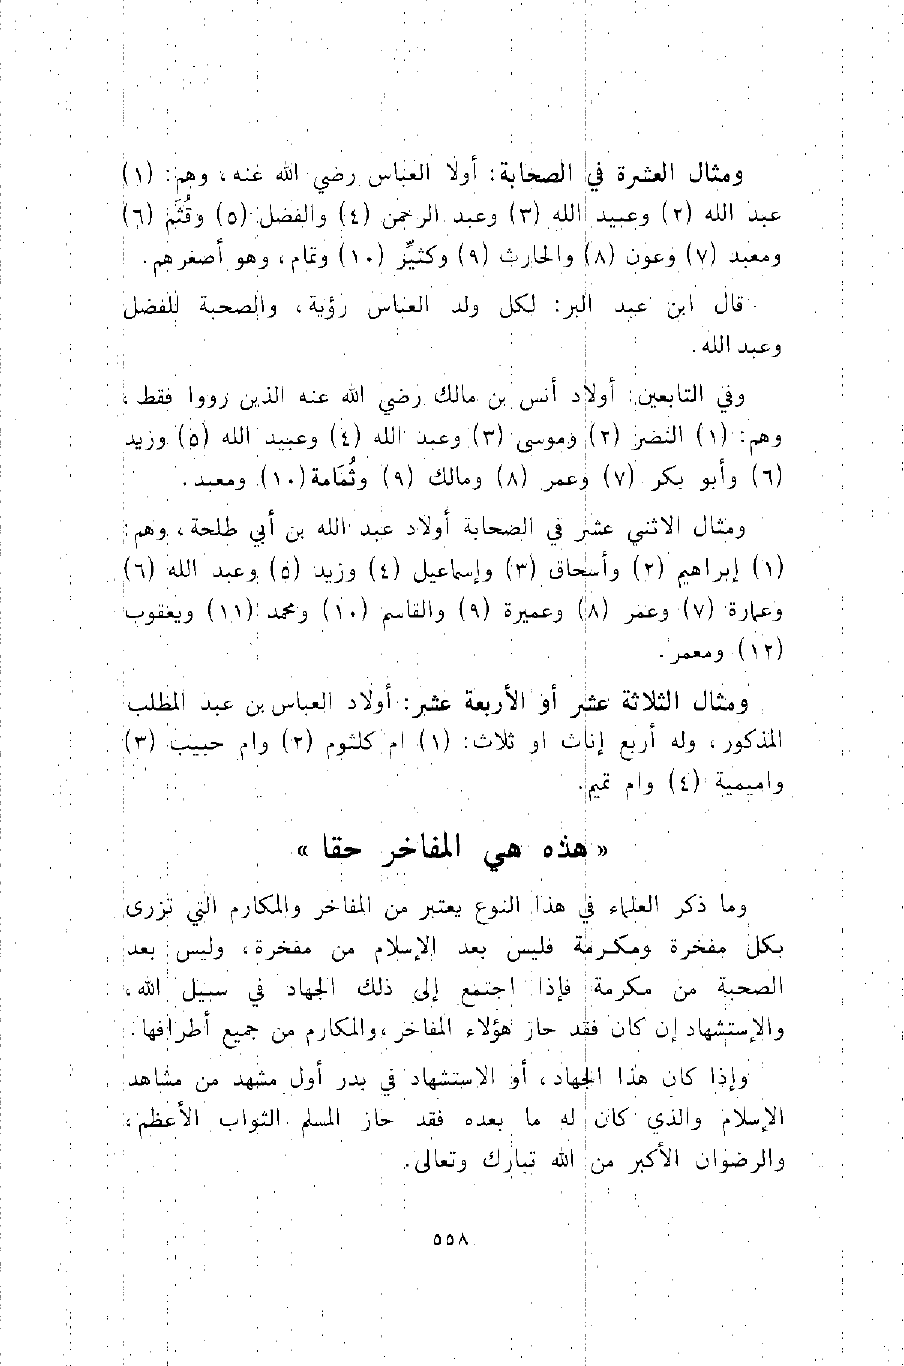 ومثال العشرة في الصحابة: أولا العباس رضي الله عنه، وهم: (١)
عبد الله (٢) وعبيد الله (٣) وعبد الرحمن (٤) والفضل (٥) وقُثَم (٦)
ومعبد (٧) وعون (٨) والحارث (٩) وكثيِّر (١٠) وتمام، وهو أصغرهم.
قال ابن عبد البر: لكل ولد العباس رؤية، والصحبة للفضل
وعبد الله.
وفي التابعين: أولاد أنس بن مالك رضي الله عنه الذين رووا فقط،
وهم: (١) النضر (٢) وموسى (٣) وعبد الله (٤) وعبيد الله (٥) وزيد
(٦) وأبو بكر (٧) وعمر (٨) ومالك (٩) وثُمَامة (١٠) ومعبد.
ومثال الاثني عشر في الصحابة أولاد عبد الله بن أبي طلحة، وهم:
(١) إبراهيم (٢) وأسحاق (٣) وإسماعيل (٤) وزيد (٥) وعبد الله (٦)
وعمارة (٧) وعمر (٨) وعميرة (٩) والقاسم (١٠) ومحمد (١١) ويعقوب
(١٢) ومعمر.
ومثال الثلاثة عشر أو الأربعة عشر: أولاد العباس بن عبد المطلب
المذكور، وله أربع إناث او ثلاث: (١) ام كلثوم (٢) وام حبيب (٣)
واميمية (٤) وام تميم.
« هذه هي المفاخر حقا »
وما ذكر العلماء في هذا النوع يعتبر من المفاخر والمكارم التي تزرى
بكل مفخرة ومكرمة فليس بعد الإسلام من مفخرة، وليس بعد
الصحبة من مكرمة فإذا اجتمع إلى ذلك الجهاد في سبيل الله،
والإستشهاد إن كان فقد حاز هؤلاء المفاخر، والمكارم من جميع أطرافها.
وإذا كان هذا الجهاد، أو الاستشهاد في بدر أول مشهد من مشاهد
الإسلام والذي كان له ما بعده فقد حاز المسلم الثواب الأعظم،
والرضوان الأكبر من الله تبارك وتعالى.
٥٥٨